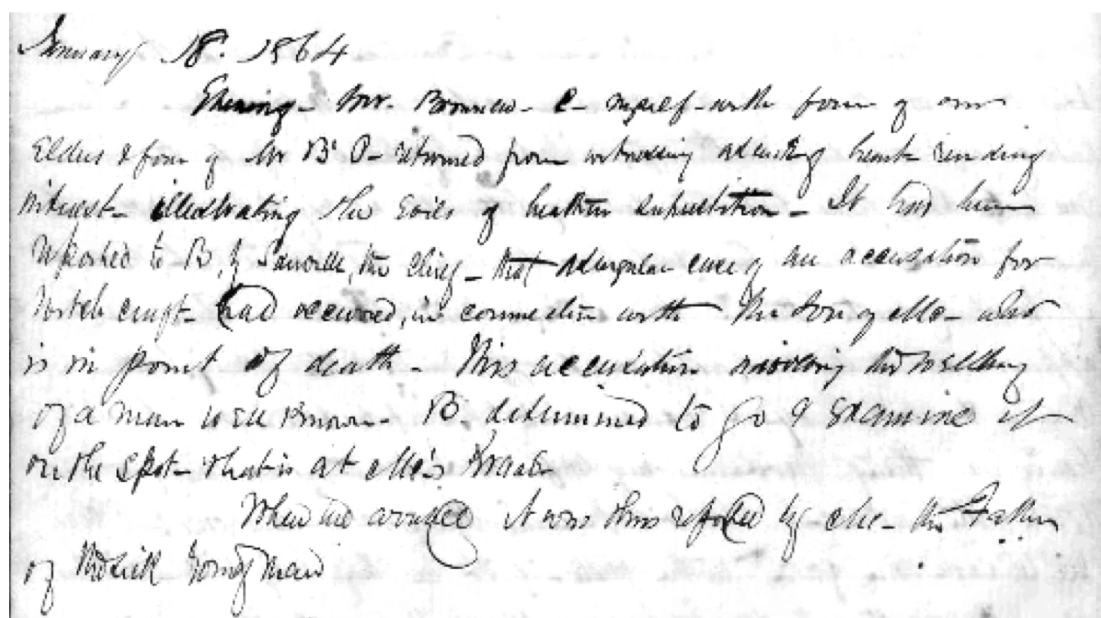 January 18. 1864
Evening - Mr. Brownlee - & myself with four of our
Elders & four of Mr B's P - returned from witnessing a case of heart rending
interest - illustrating the evils of heathen superstition - It had been
reported to B, by Sandile, the chief - that a singular case of an accusation for
witch craft - had occurred, in connection with the son of - who
is in point of death - This accusation involving the
of a man well known - B. determined to go & examine it
on the spot - that is at Kraal
When we arrived it was thus reported by - the Father
of the sick young man